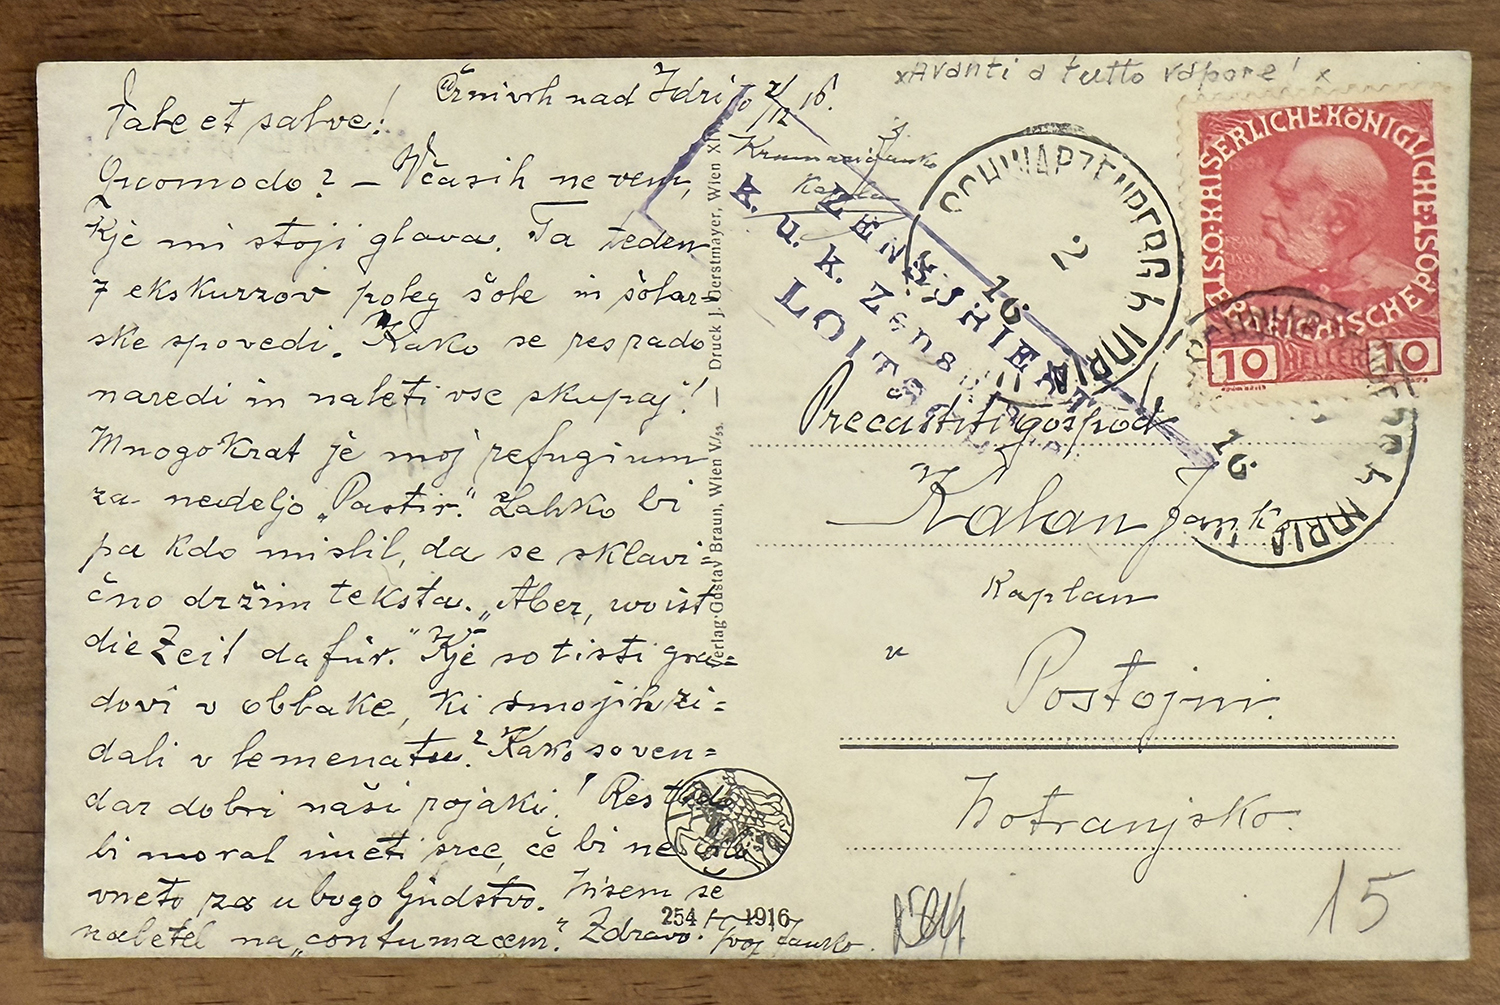 xAvanti a tutto vapore! x
Črnivrh nad Idrijo 2/12 16.
Vale et salve!
Quomodo? – Včasih ne vem,
kje mi stoji glava. Ta teden
7 ekskurzov poleg šole in šolar=
ske spovedi. Kako se res rado
naredi in naleti vse skupaj!
Mnogokrat je moj refugium
za nedeljo „Pastir." Lahko bi
pa kdo mislil, da se sklavi=
čno držim teksta. „Aber, wo ist
die Zeit dafür." Kje so tisti gra=
dovi v oblake, ki smo jih zi=
dali v lemenatu? Kako so ven=
dar dobri naši rojaki! Res
bi moral imeti srce, če bi ne
vneto za ubogo ljudstvo. Nisem še
naletel na „contumacem". Zdravo! Tvoj Janko.
Verlag Gustav Braun, Wien V/55. — Druck J. Gerstmayer, Wien XIV
254 1916
ZENSURIERT
K. u. K. Zensur
LOITSCH
SCHWARZENBERG b IDRIA
2
16
SCHWARZENBERG b IDRIA
16
KAISERLICHEKÖNIGLICHEÖSTERREICHISCHEPOST
10 HELLER 10
Prečastiti gospod
Kalan Janko
Kaplan
v
Postojni.
Notranjsko.
15